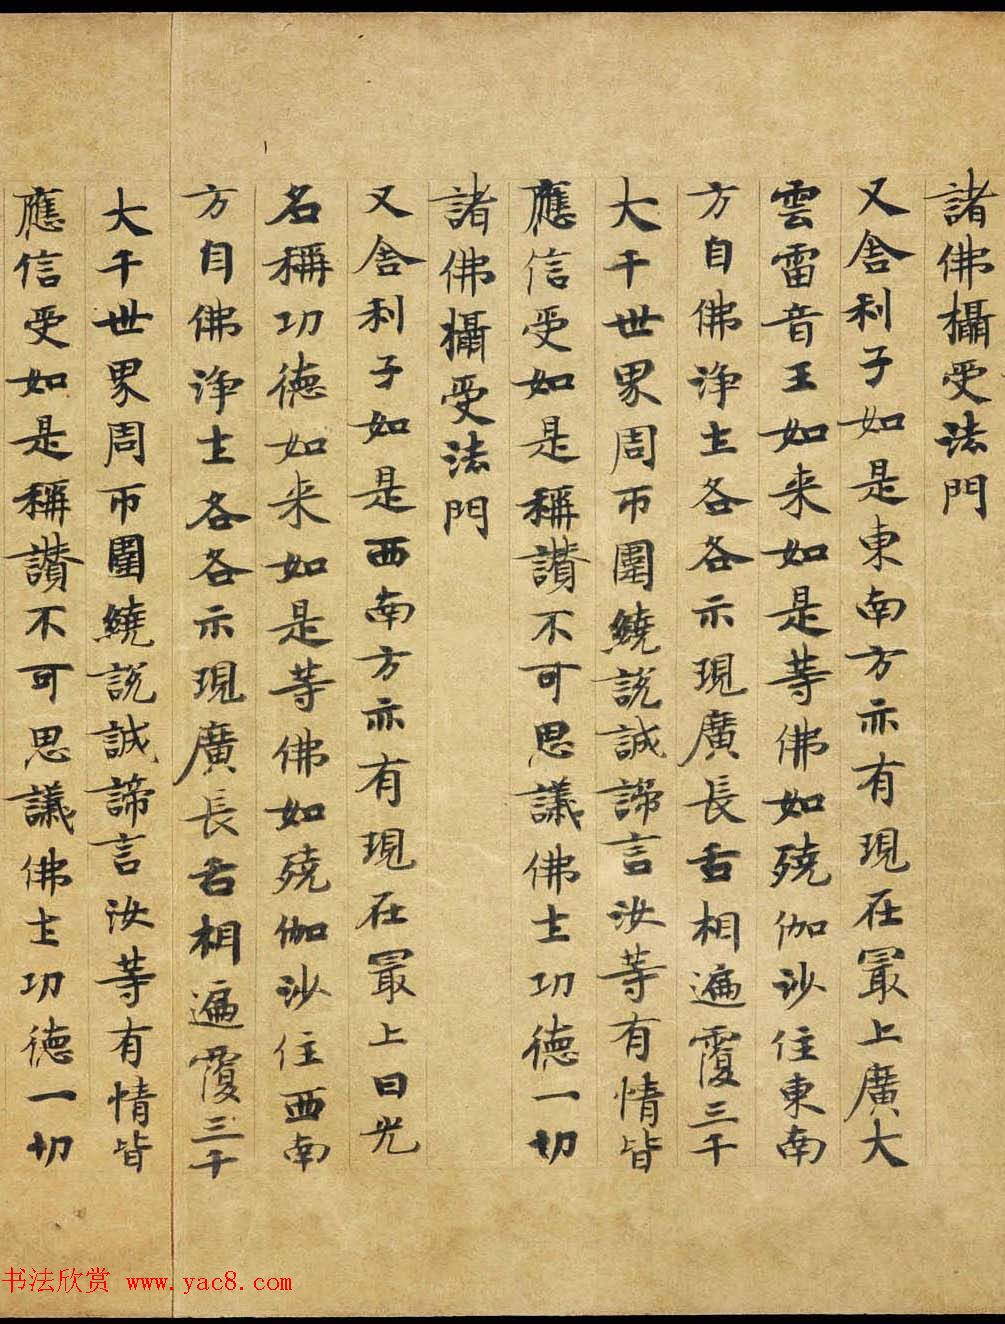 諸佛攝受法門
又舍利子如是東南方亦有現在冣上廣大
雲雷音王如来如是等佛如殑伽沙住東南
方自佛淨土各各示現廣長舌相遍覆三千
大千世界周帀圍繞說誠諦言汝等有情皆
應信受如是稱讚不可思議佛土功德一切
諸佛攝受法門
又舍利子如是西南方亦有現在冣上日光
名稱功德如来如是等佛如殑伽沙住西南
方自佛淨土各各示現廣長舌相遍覆三千
大千世界周帀圍繞說誠諦言汝等有情皆
應信受如是稱讚不可思議佛土功德一切
书法欣赏 www.yac8.com